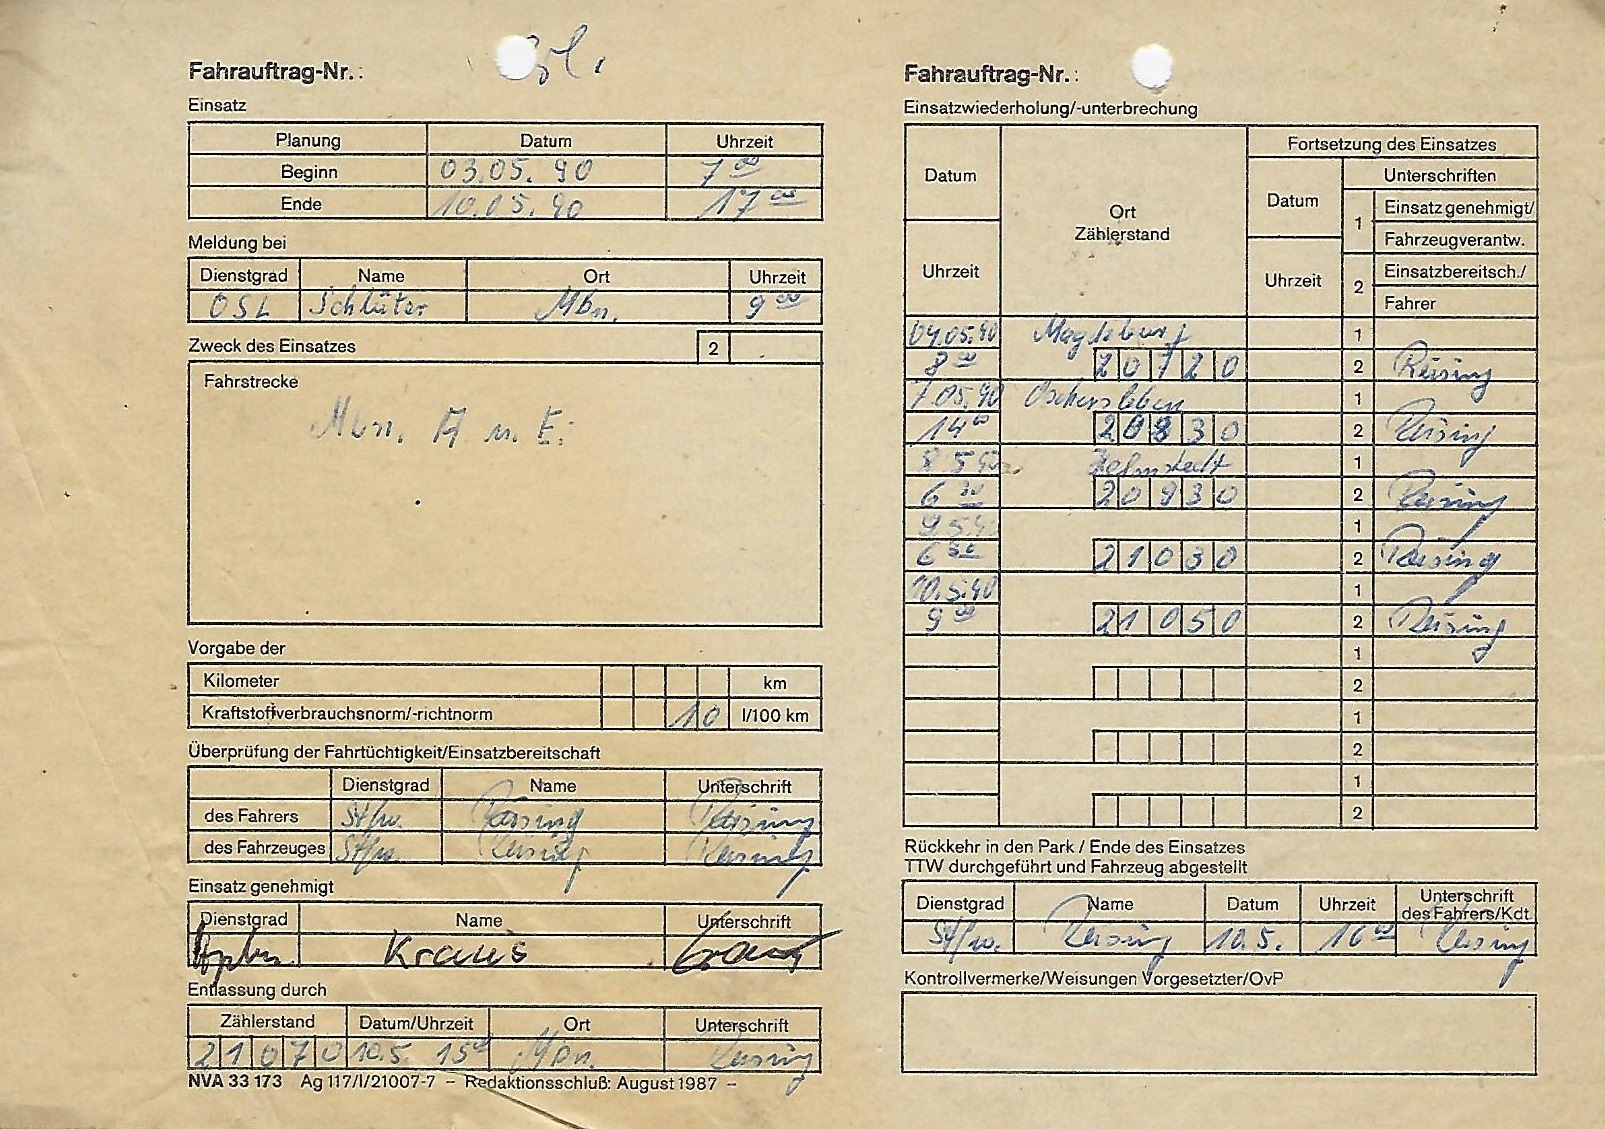 Fahrauftrag-Nr.:
Einsatz
Planung Datum Uhrzeit
Beginn 03.05.90 7 00
Ende 10.05.90 17 00
Meldung bei
Dienstgrad Name Ort Uhrzeit
OSL Schlüter Mbn. 9 00
Zweck des Einsatzes 2
Fahrstrecke
Mbn. A u. E.
Vorgabe der
Kilometer km
Kraftstoffverbrauchsnorm/-richtnorm 10 l/100 km
Überprüfung der Fahrtüchtigkeit/Einsatzbereitschaft
Dienstgrad Name Unterschrift
des Fahrers Stfw. Reising Reising
des Fahrzeuges Stfw. Reising Reising
Einsatz genehmigt
Dienstgrad Name Unterschrift
Kraus
Entlassung durch
Zählerstand Datum/Uhrzeit Ort Unterschrift
21070 10.5. 15 00 Mbn. Reising
NVA 33 173 Ag 117/I/21007-7 – Redaktionsschluß: August 1987 –
Fahrauftrag-Nr.:
Einsatzwiederholung/-unterbrechung
Datum
Uhrzeit
Ort
Zählerstand
Fortsetzung des Einsatzes
Datum
Uhrzeit
Unterschriften
1 Einsatz genehmigt/
Fahrzeugverantw.
2 Einsatzbereitsch./
Fahrer
04.05.90 Magdeburg 1
8 00 20720 2 Reising
7.05.90 Oschersleben 1
14 00 20830 2 Reising
8.5.90 Helmstedt 1
6 30 20930 2 Reising
9.5.90 1
6 30 21030 2 Reising
10.5.90 1
9 00 21050 2 Reising
1
2
1
2
1
2
Rückkehr in den Park / Ende des Einsatzes
TTW durchgeführt und Fahrzeug abgestellt
Dienstgrad Name Datum Uhrzeit Unterschrift des Fahrers/Kdt.
Stfw. Reising 10.5. 16 00 Reising
Kontrollvermerke/Weisungen Vorgesetzter/OvP